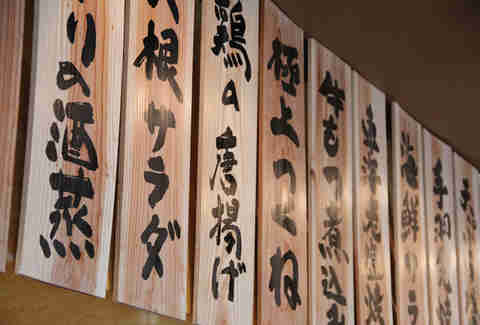 手羽
海鮮サラ
海老塩焼
牛もつ煮込み
極上つくね
鶏の唐揚げ
根サラダ
りの酒蒸